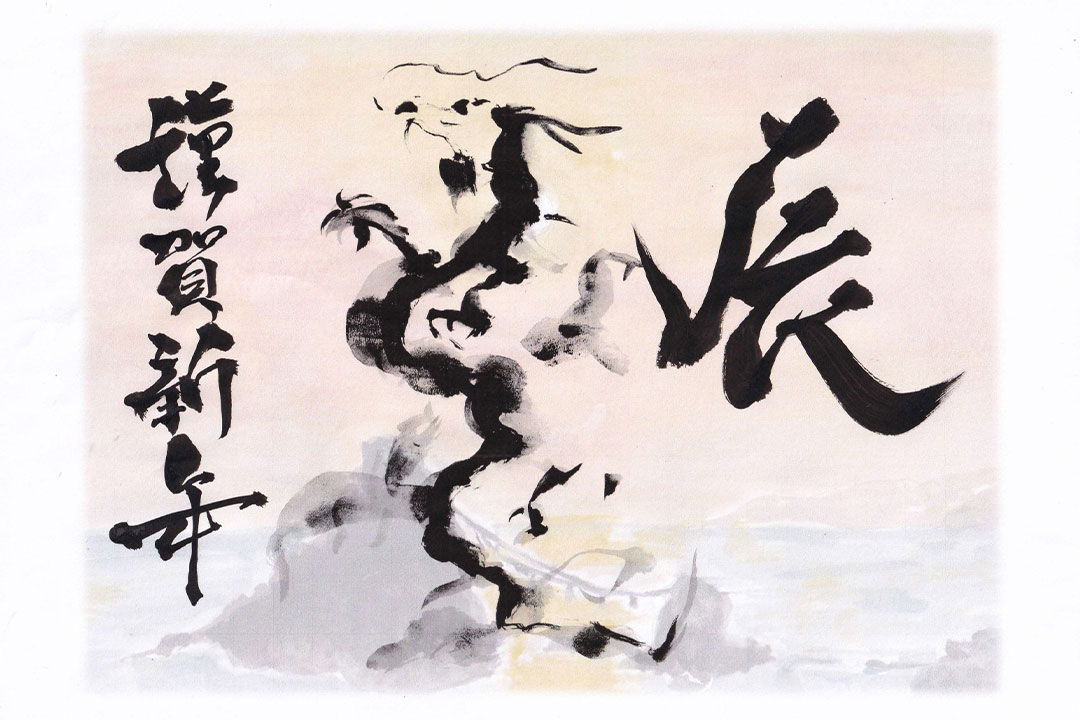 辰
謹賀新年